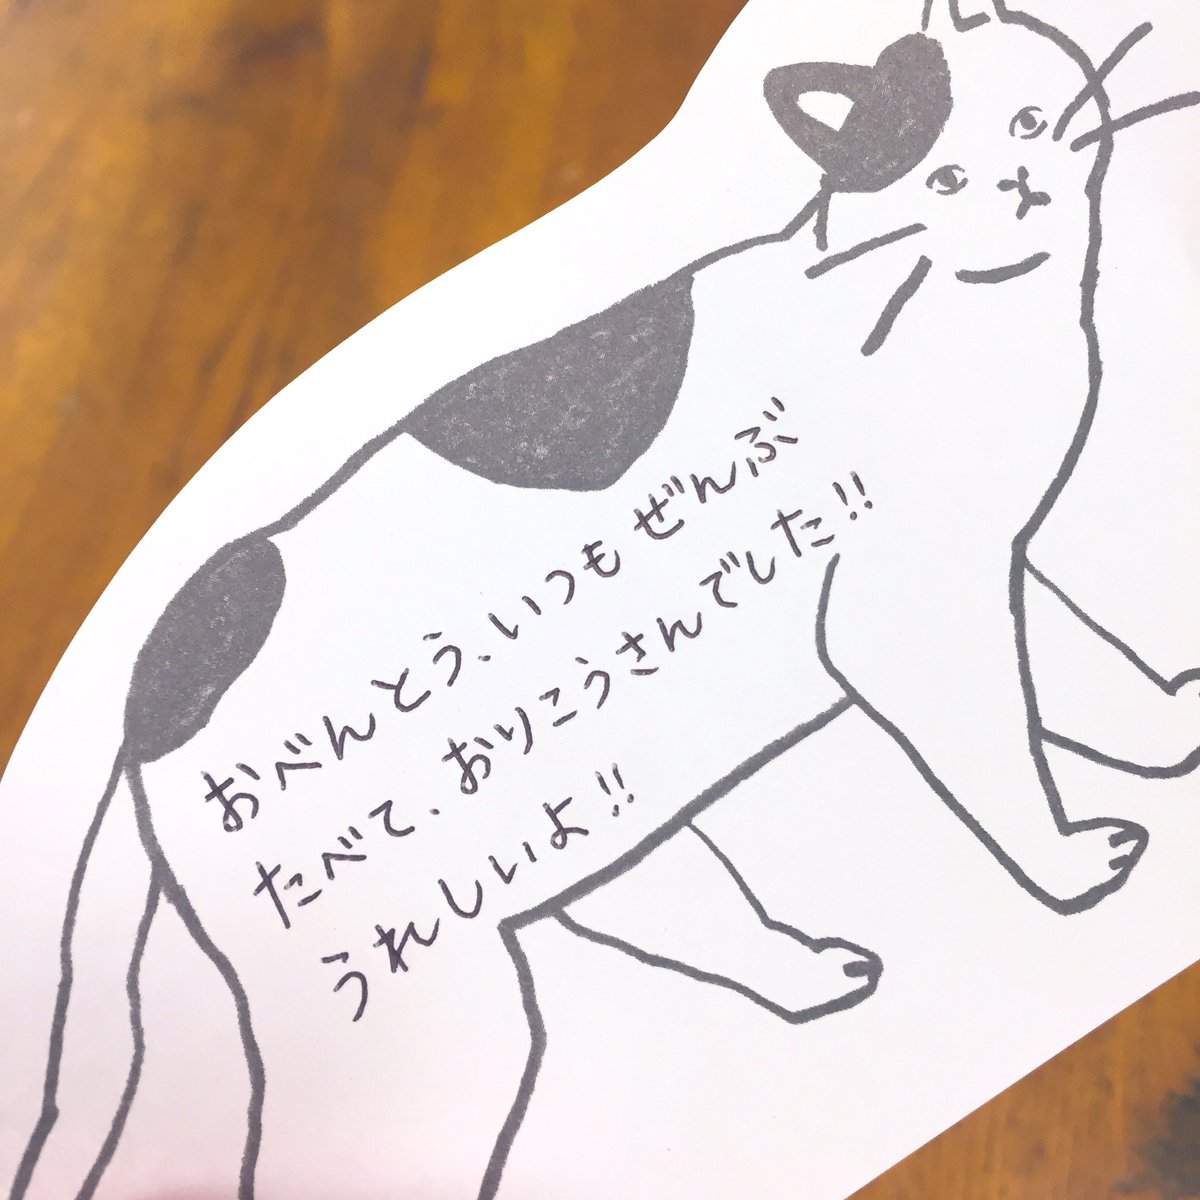 おべんとう、いつもぜんぶ
たべて、おりこうさんでした!!
うれしいよ!!